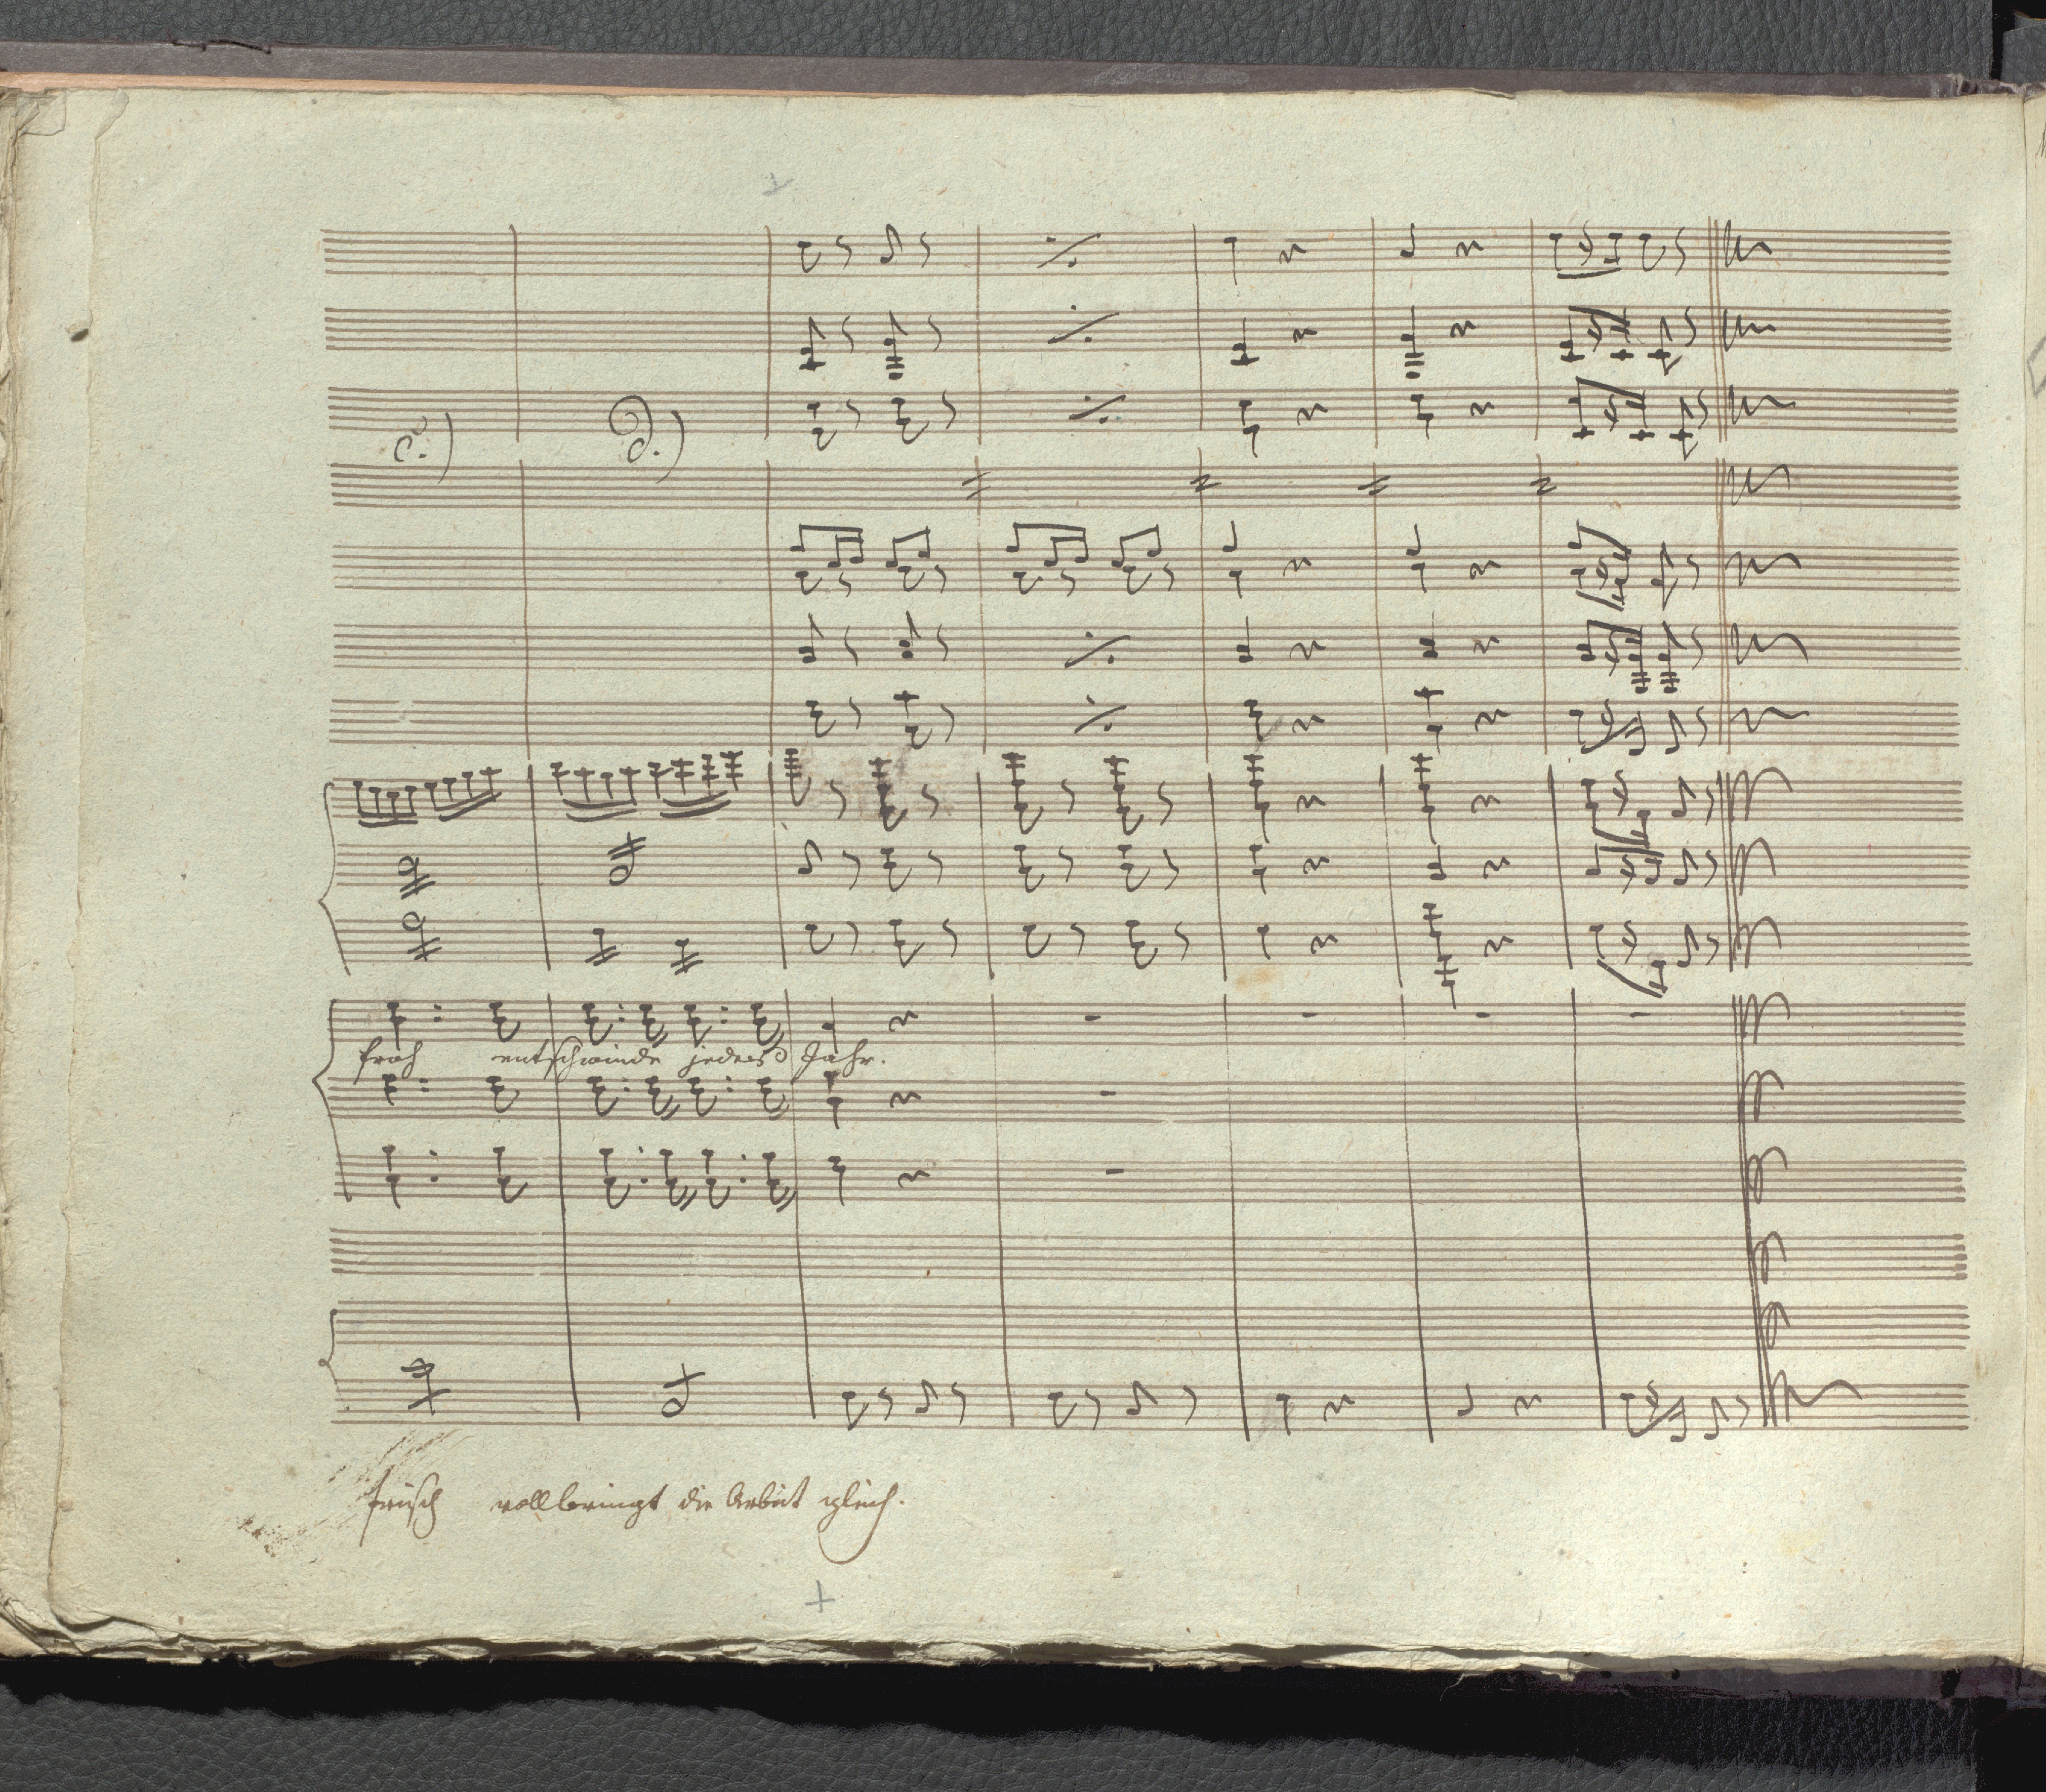 c.) d.)
froh entschwinde jedes Jahr.
frisch vollbringt die Arbeit gleich.